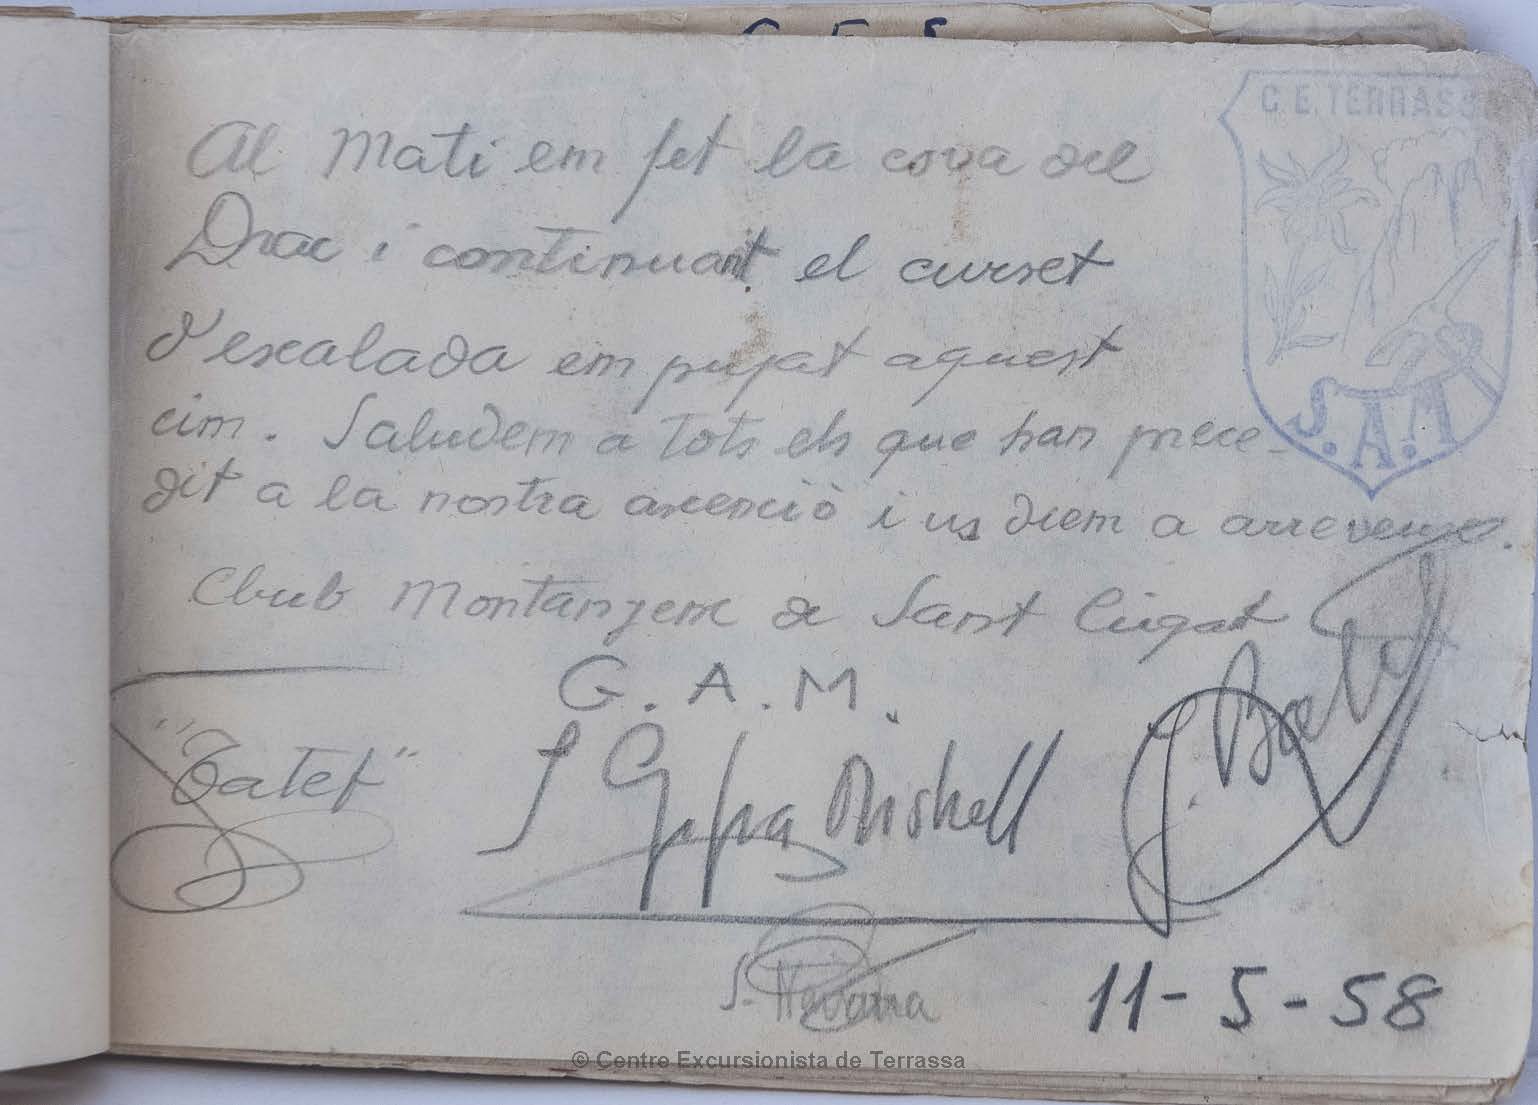 C.E. TERRASS
Al Mati em fet la cova del
Drac i continuant el curset
d'escalada em pujat aquest
cim. Saludem a tots els que han prece-
dit a la nostra ascenció i us diem a arreveure.
Club Montanyenc de Sant Cugat
G.A.M.
"Tatet"
S. Navarra
11-5-58
S.A.M
© Centre Excursionista de Terrassa